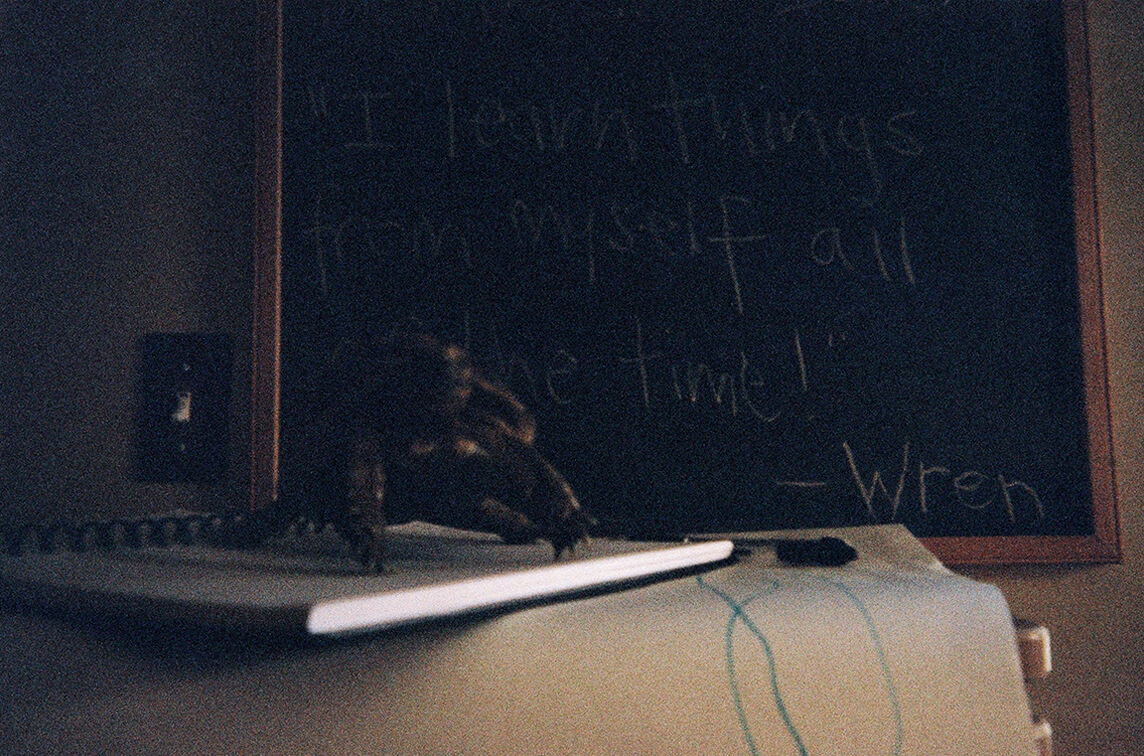 "I learn things
from myself all
the time!"
- Wren